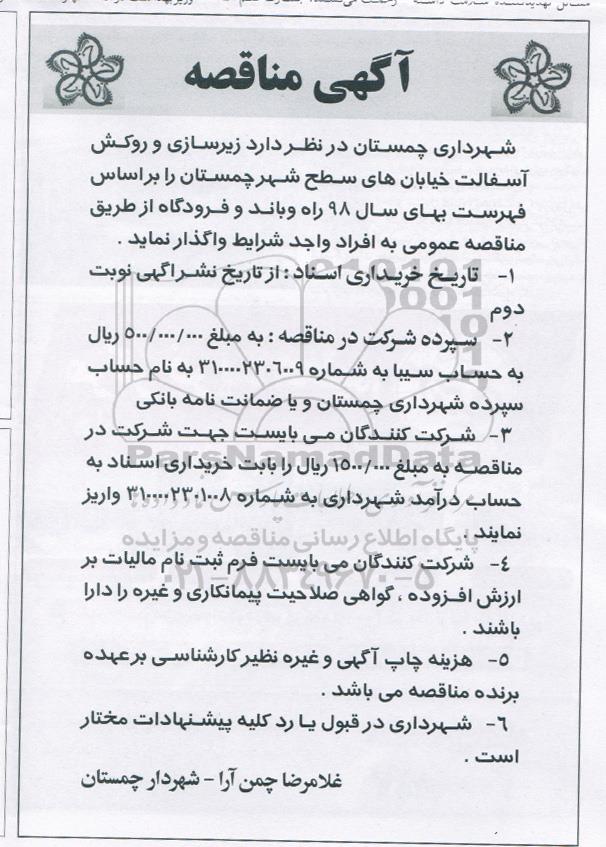 آگهی مناقصه
شهرداری چمستان در نظر دارد زیرسازی و روکش
آسفالت خیابان های سطح شهر چمستان را بر اساس
فهرست بهای سال ۹۸ راه وباند و فرودگاه از طریق
مناقصه عمومی به افراد واجد شرایط واگذار نماید .
۱- تاریخ خریداری اسناد : از تاریخ نشر اگهی نوبت
دوم
۲- سپرده شرکت در مناقصه : به مبلغ ۵۰۰/۰۰۰/۰۰۰ ریال
به حساب سیبا به شماره ۳۱۰۰۰۰۲۳۰۶۰۰۹ به نام حساب
سپرده شهرداری چمستان و یا ضمانت نامه بانکی
۳- شرکت کنندگان می بایست جهت شرکت در
مناقصه به مبلغ ۱۵۰۰/۰۰۰ ریال را بابت خریداری اسناد به
حساب درآمد شهرداری به شماره ۳۱۰۰۰۰۲۳۰۱۰۰۸ واریز
نمایند .
۴- شرکت کنندگان می بایست فرم ثبت نام مالیات بر
ارزش افزوده ، گواهی صلاحیت پیمانکاری و غیره را دارا
باشند .
۵- هزینه چاپ آگهی و غیره نظیر کارشناسی بر عهده
برنده مناقصه می باشد .
۶- شهرداری در قبول یا رد کلیه پیشنهادات مختار
است .
غلامرضا چمن آرا - شهردار چمستان
ParsNamadData
پایگاه اطلاع رسانی مناقصه و مزایده
۰۲۱-۸۸۳۴۹۶۷۰-۵